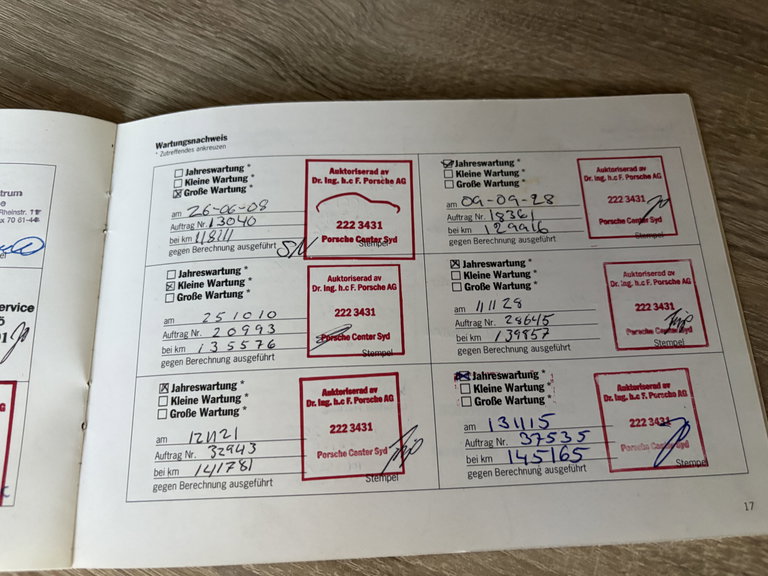 trum
e
Rheinstr. 11
x 70 61-44
ervice
Wartungsnachweis
* Zutreffendes ankreuzen
Jahreswartung *
Kleine Wartung *
Große Wartung *
am 26-06-08
Auftrag Nr. 13040
bei km 118111
gegen Berechnung ausgeführt
Auktoriserad av
Dr. Ing. h.c F. Porsche AG
222 3431
Porsche Center Syd
Stempel
Jahreswartung *
Kleine Wartung *
Große Wartung *
am 09-09-28
Auftrag Nr. 18361
bei km 129916
gegen Berechnung ausgeführt
Auktoriserad av
Dr. Ing. h.c F. Porsche AG
222 3431
Porsche Center Syd
Stempel
Jahreswartung *
Kleine Wartung *
Große Wartung *
am 251010
Auftrag Nr. 20993
bei km 135576
gegen Berechnung ausgeführt
Auktoriserad av
Dr. Ing. h.c F. Porsche AG
222 3431
Porsche Center Syd
Stempel
Jahreswartung *
Kleine Wartung *
Große Wartung *
am 111128
Auftrag Nr. 28645
bei km 139857
gegen Berechnung ausgeführt
Auktoriserad av
Dr. Ing. h.c F. Porsche AG
222 3431
Porsche Center Syd
Stempel
Jahreswartung *
Kleine Wartung *
Große Wartung *
am 121121
Auftrag Nr. 32943
bei km 141781
gegen Berechnung ausgeführt
Auktoriserad av
Dr. Ing. h.c F. Porsche AG
222 3431
Porsche Center Syd
Stempel
Jahreswartung *
Kleine Wartung *
Große Wartung *
am 131115
Auftrag Nr. 37535
bei km 145165
gegen Berechnung ausgeführt
Auktoriserad av
Dr. Ing. h.c F. Porsche AG
222 3431
Porsche Center Syd
Stempel
17